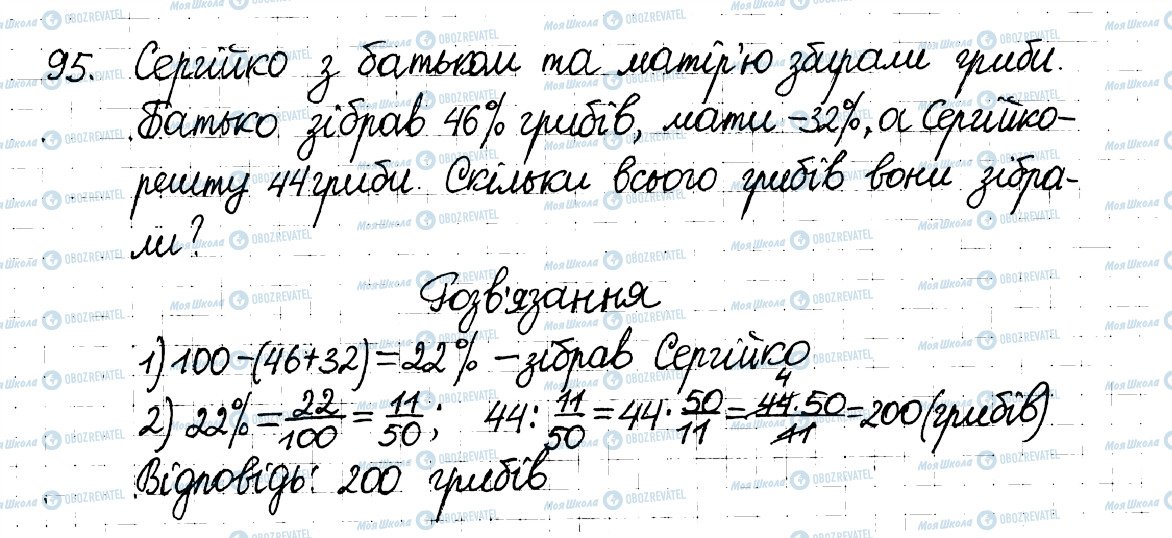 95. Сергійко з батьком та матір'ю збирали гриби.
Батько зібрав 46% грибів, мати -32%, а Сергійко-
решту 44 гриби. Скільки всього грибів вони зібра-
ли?
Розв'язання
1) 100-(46+32)=22% - зібрав Сергійко
2) 22% = 22/100 = 11/50; 44: 11/50 = 44 · 50/11 = 44·50/11 = 200 (грибів) 4
Відповідь: 200 грибів
Моя Школа OBOZREVATEL